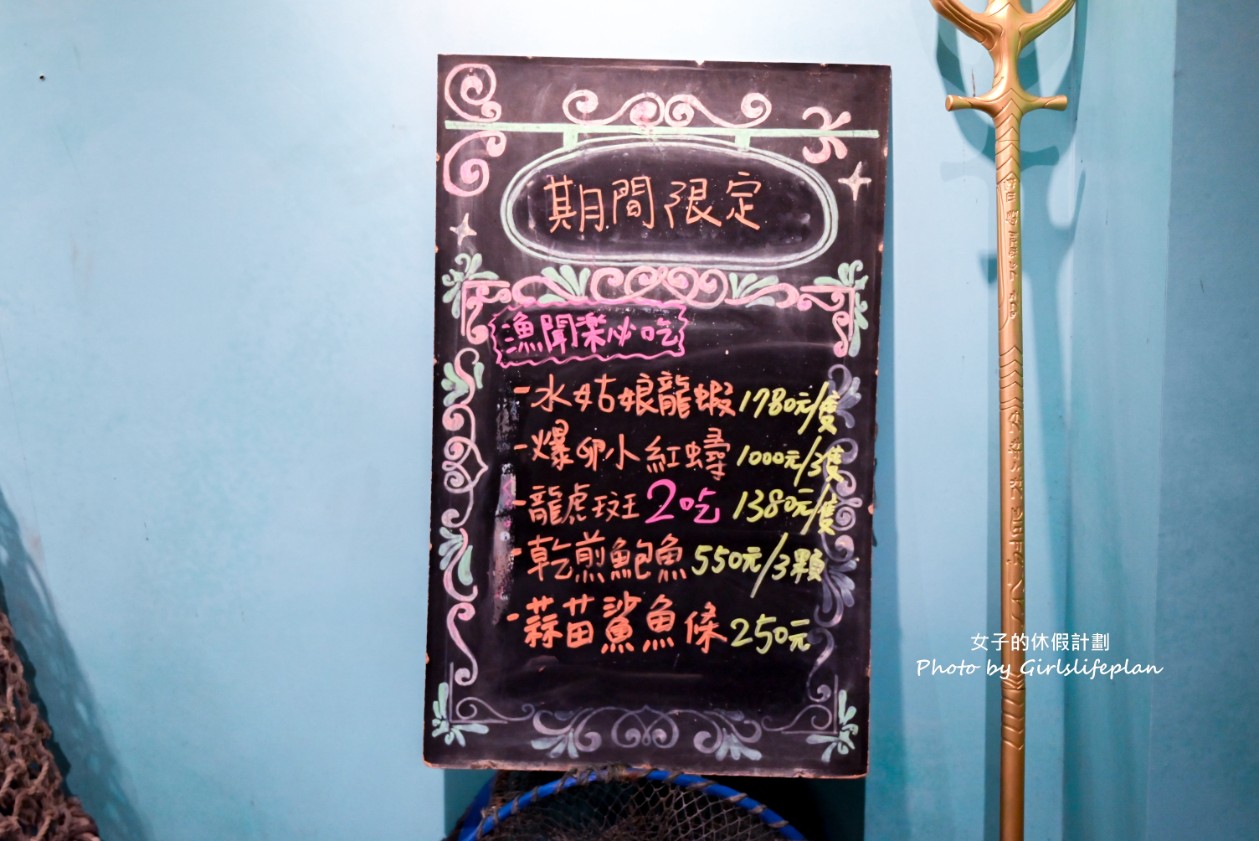 期間限定
漁聞樂必吃
-水姑娘龍蝦1780元/隻
-爆卵小紅蟳1000元/3隻
-龍虎斑2吃1380元/隻
-乾煎鮑魚550元/3顆
-蒜苗鯊魚條250元
女子的休假計劃
Photo by Girlslifeplan